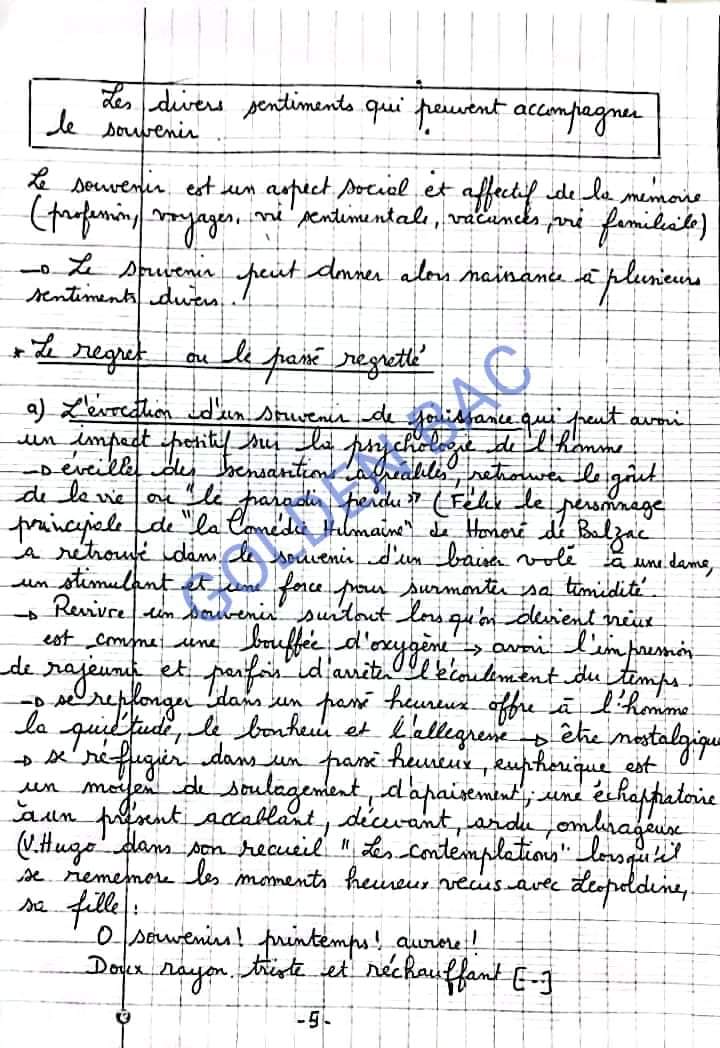 Les divers sentiments qui peuvent accompagner
le souvenir.
Le souvenir est un aspect social et affectif de la mémoire
(profession, voyages, vie sentimentale, vacances, vie familiale)
→ Le souvenir peut donner alors naissance à plusieurs
sentiments divers.
* Le regret ou le passé regretté
a) L'évocation d'un souvenir de jouissance qui peut avoir
un impact positif sur la psychologie de l'homme
→ éveiller des sensations agréables, retrouver le goût
de la vie ou "le paradis perdu" (Félix le personnage
principale de "la Comédie Humaine" de Honoré de Balzac
a retrouvé dans le souvenir d'un baiser volé à une dame,
un stimulant et une force pour surmonter sa timidité.
→ Revivre un souvenir surtout lorsqu'on devient vieux
est comme une bouffée d'oxygène → avoir l'impression
de rajeunir et parfois d'arrêter l'écoulement du temps.
→ se replonger dans un passé heureux offre à l'homme
la quiétude, le bonheur et l'allegresse → être nostalgique
→ se réfugier dans un passé heureux, euphorique est
un moyen de soulagement, d'apaisement, une échappatoire
à un présent accablant, décevant, ardu, ombrageuse
(V.Hugo dans son recueil "Les contemplations" lorsqu'il
se rememore les moments heureux vecus avec Leopoldine,
sa fille :
O souvenirs! printemps! aurore!
Doux rayon triste et réchauffant [--]
-5-
GOLDEN BAC